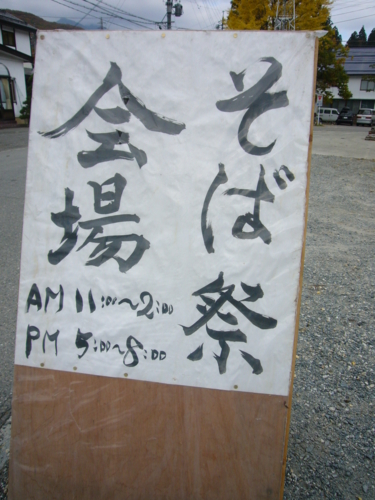 そば祭
会場
AM 11:00~2:00
PM 5:00~8:00